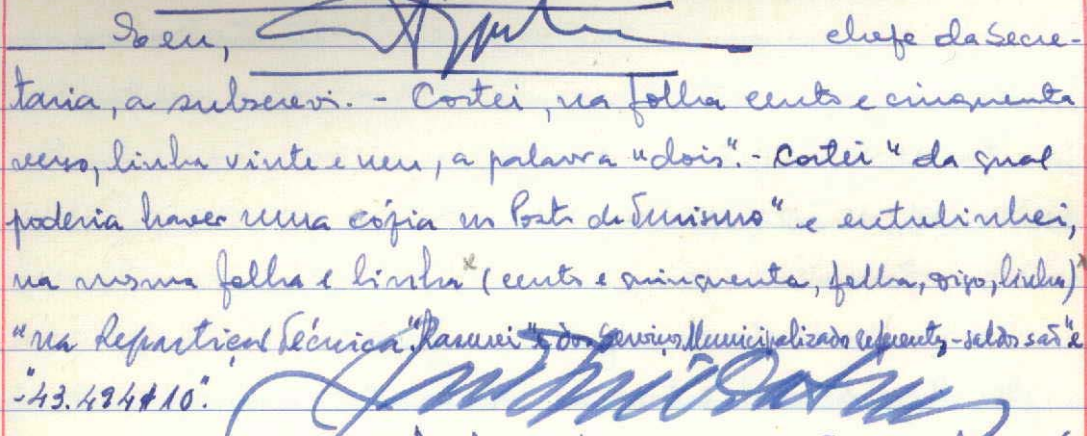 E eu, chefe da Secre-
taria, a subscrevi. - Cortei, na folha cento e cinquenta
verso, linha vinte e um, a palavra "dois". - Cortei "da qual
poderia haver uma cópia no Posto de Turismo" e entrelinhei,
na mesma folha e linha (cento e cinquenta, folha, digo, linha)
"na Repartição Técnica". Rasurei "e dos Serviços Municipalizados referentes - saldos são" e
-"43.494$10".